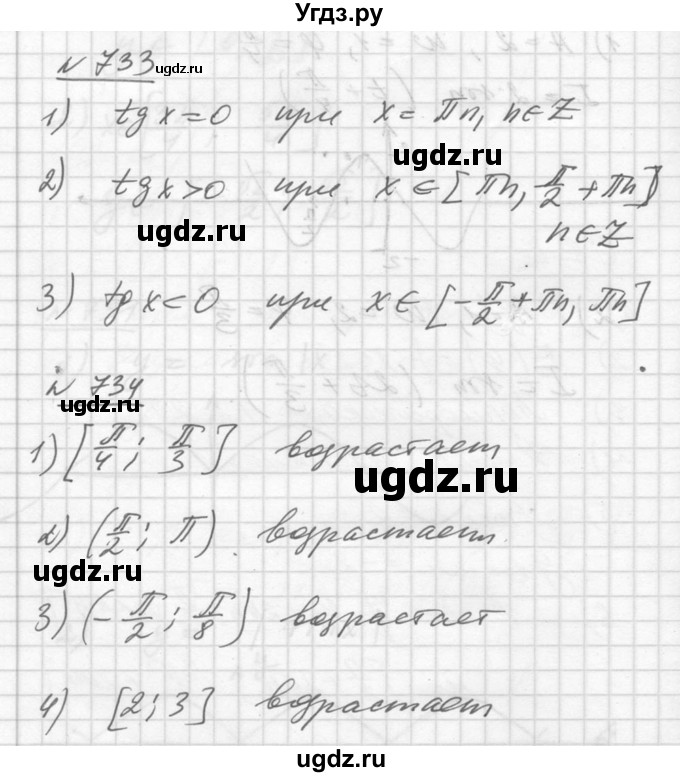 Угдз.ру
N 733 ugdz.ru
1) tg x = 0 при x = πn, n ∈ Z
ugdz.ru
2) tg x > 0 при x ∈ [πn, π/2 + πn]
ugdz.ru
n ∈ Z
3) tg x < 0 при x ∈ [-π/2 + πn, πn]
N 734
ugdz.ru
1) [π/4; π/3] возрастает
ugdz.ru
2) (π/2; π) возрастает.
ugdz.ru
3) (-π/2; π/8) возрастает
4) [2; 3] возрастает
ugdz.ru
ugdz.ru